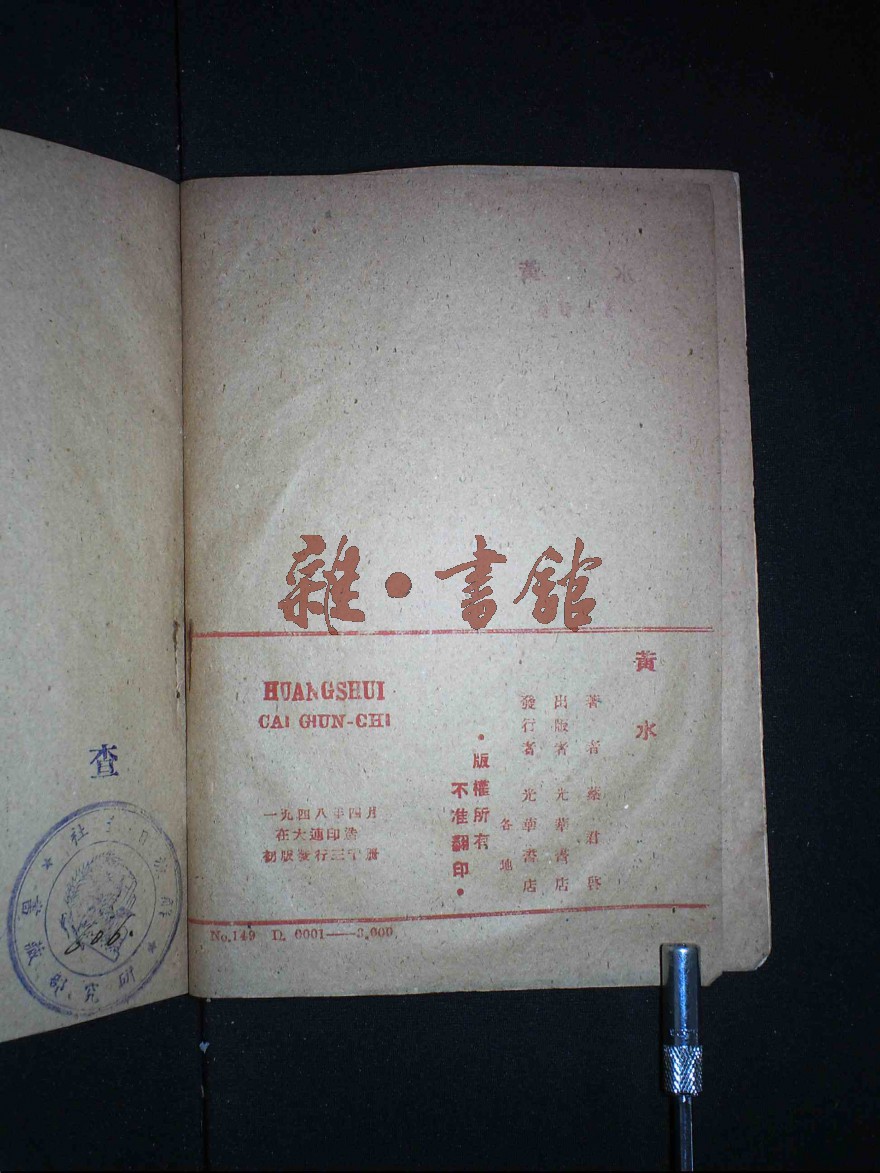 雜·書館
黃水
著者 蔡君啓
出版者 光華書店
發行者 各地光華書店
·版權所有
不准翻印·
HUANGSHUI
CAI GIUN-CHI
一九四八年四月
在大連印造
初版發行三千冊
No.149 D. 0001——3.000
查
研究部